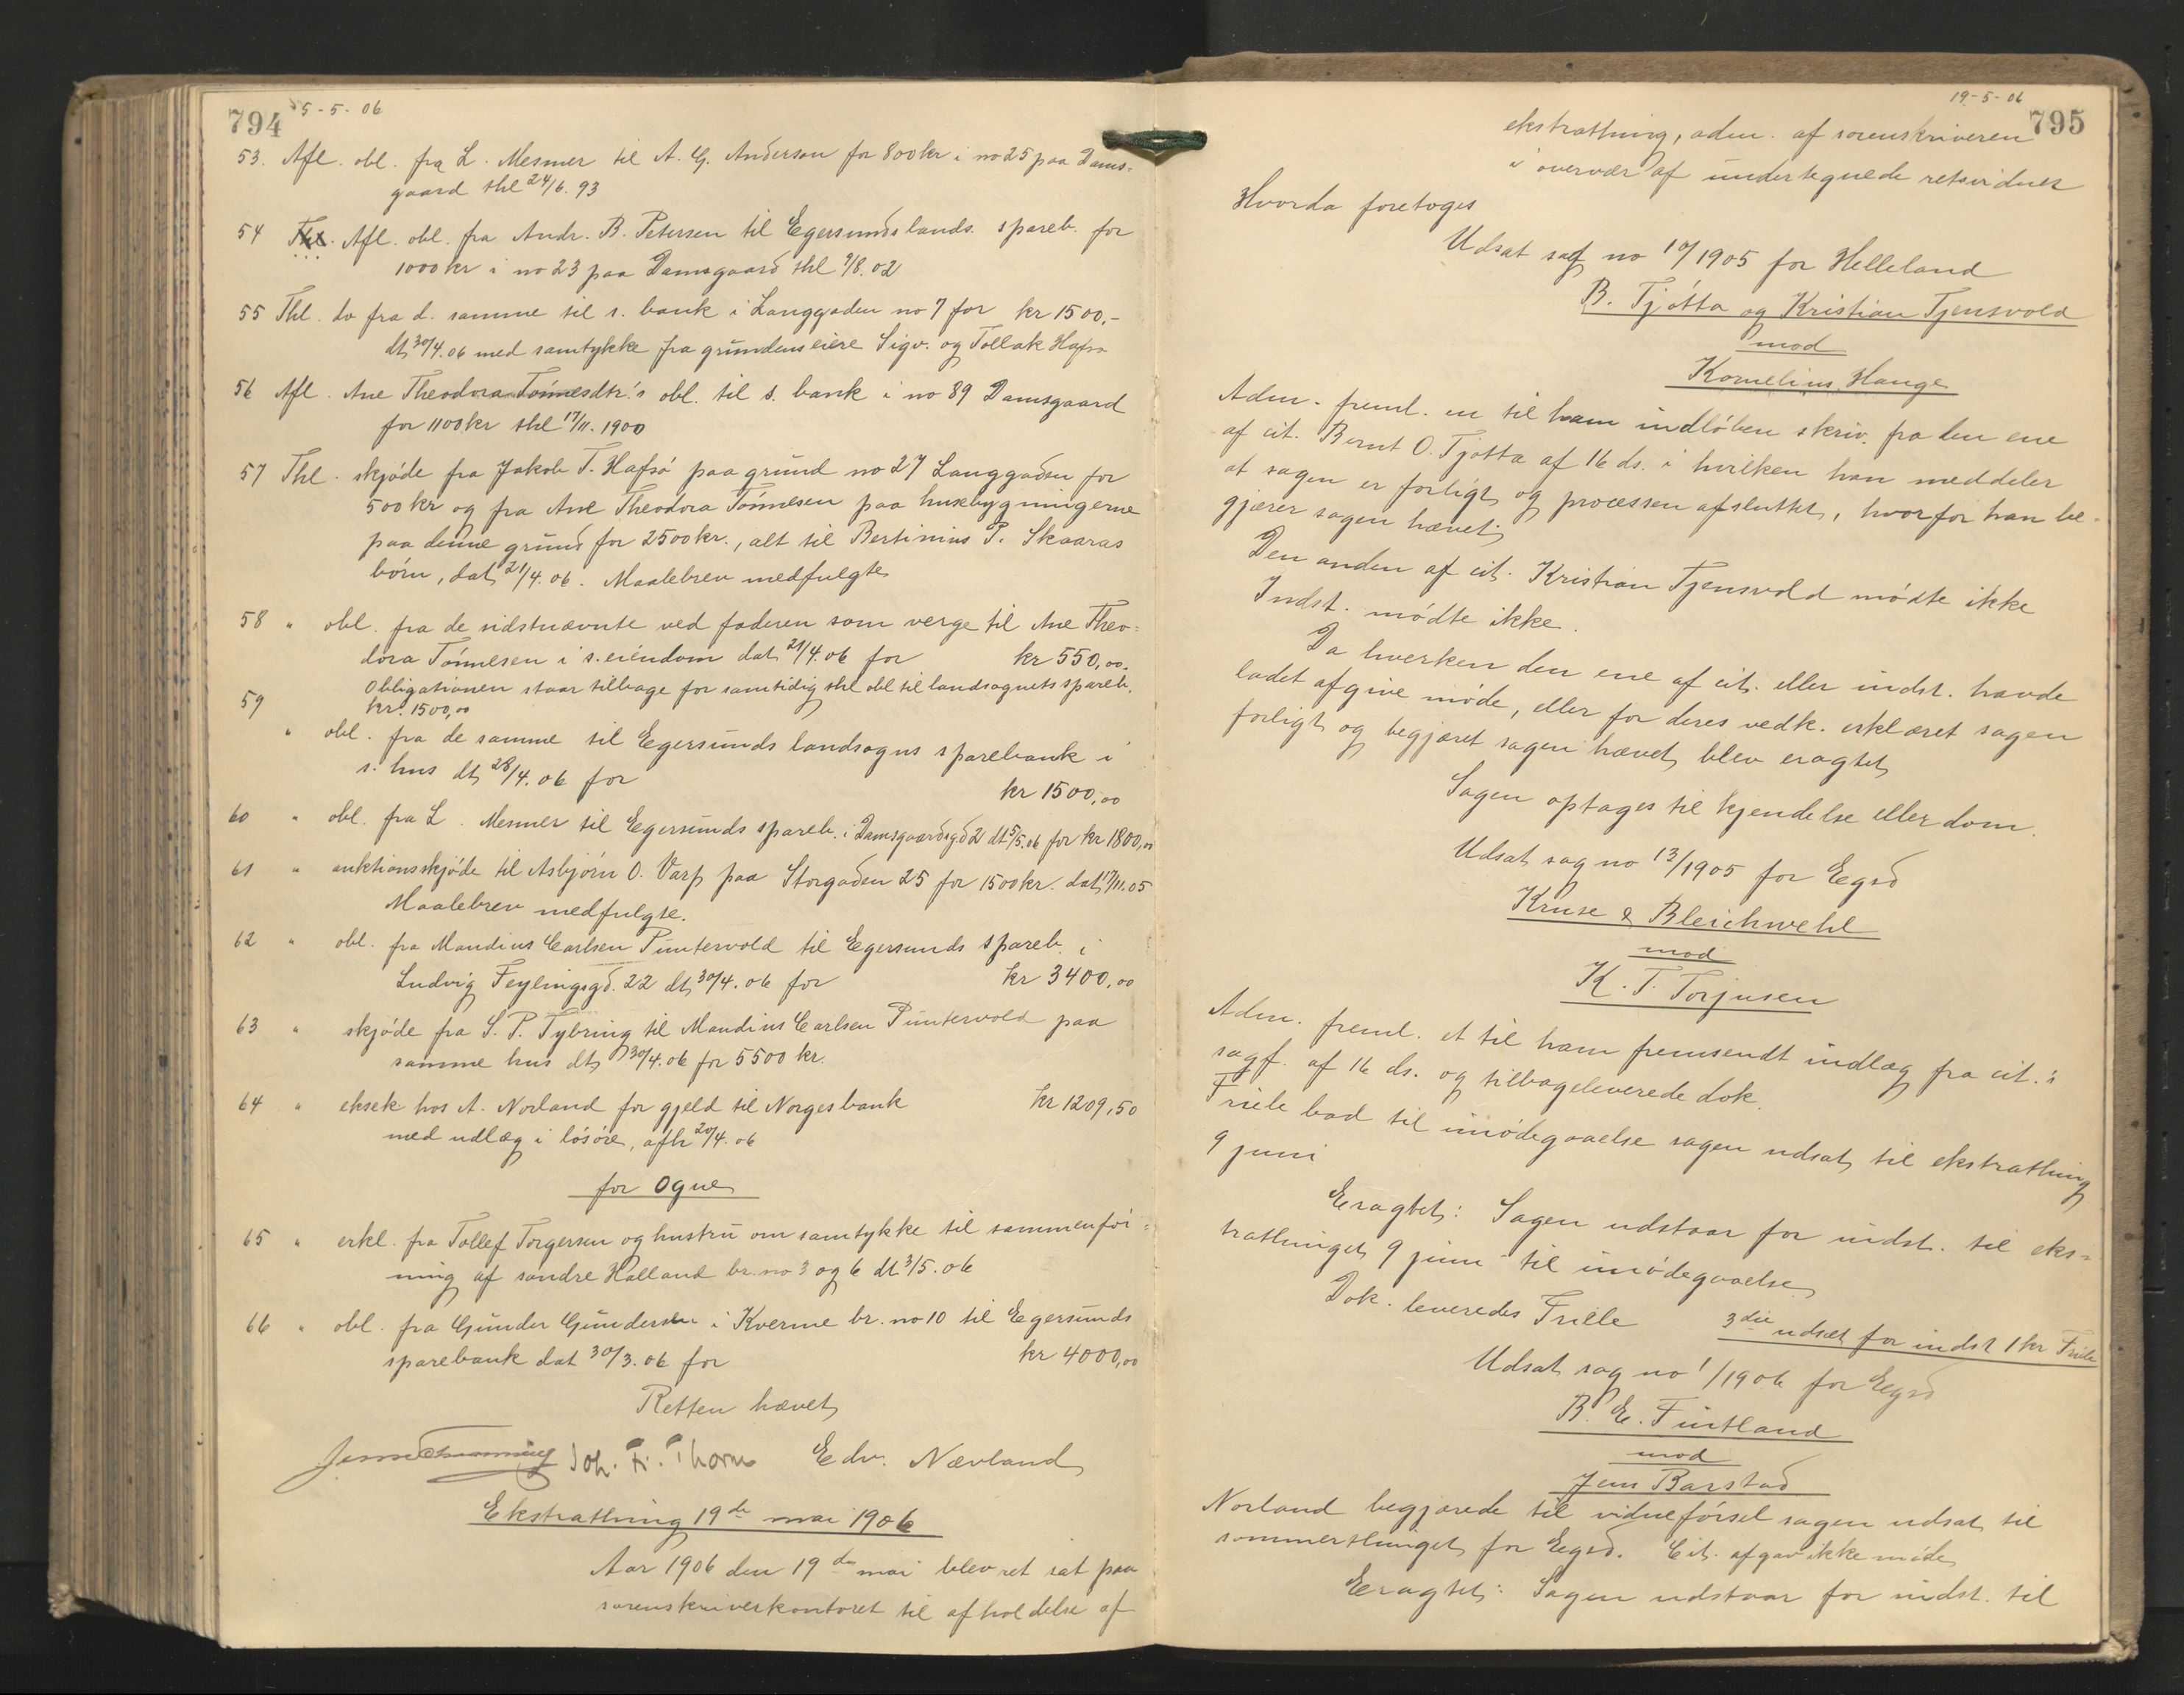 794
5-5-06
53. Afl. obl. fra L. Mesmer til A. G. Anderson for 800 kr i no 25 paa Dams-
gaard thl 24/6. 93
54 Thl. Afl. obl. fra Andr. B. Petersen til Egersunds lands. spareb. for
1000 kr i no 23 paa Damsgaard thl 9/8. 02
55 Thl. do fra d. samme til s. bank i Langgaden no 7 for kr 1500,-
dt 30/4. 06 med samtykke fra grundens eiere Sigv. og Tollak Hafsø
56 Afl. Ane Theodora Tönnesdtr's obl. til s. bank i no 89 Damsgaard
for 1100 kr thl 17/11. 1900
57 Thl. skjöde fra Jakob T. Hafsö paa grund no 27 Langgaden for
500 kr og fra Ane Theodora Tönnesen paa husebygningerne
paa denne grund for 2500 kr., alt til Bertinius P. Skaaras
börn, dat 21/4. 06. Maalebrev medfulgte
58 " obl. fra de sidstnævnte ved faderen som verge til Ane Theo-
dora Tönnesen i s. eiendom dat 21/4. 06 for kr 550,00.
Obligationen staar tilbage for samtidig thl obl til landsognets spareb.
kr. 1500,00
59 " obl. fra de samme til Egersunds landsogns sparebank i
s. hus dt 28/4. 06 for kr 1500,00
60 " obl. fra L. Mesmer til Egersunds spareb. i Damsgaardsgd 2 dt 5/5. 06 for kr 1800,00
61 " auktionsskjöde til Asbjörn O. Varp paa Storgaden 25 for 1500 kr. dat 17/11. 05
Maalebrev medfulgte.
62 " obl. fra Mandius Carlsen Puntervold til Egersunds spareb. i
Ludvig Feylingsgd. 22 dt 30/4. 06 for kr 3400,00
63 " skjöde fra S. P. Tybring til Mandius Carlsen Puntervold paa
samme hus dt 30/4. 06 for 5500 kr.
64 " eksek hos A. Norland for gjeld til Norges bank kr 1209,50
med udlæg i lösöre, afh 20/4. 06
for Ogne
65 " erkl. fra Tollef Torgersen og hustru om samtykke til sammenföi-
ning af søndre Halland br. no 3 og 6 dt 3/5. 06
66 " obl. fra Gunder Gundersen i Kverme br. no 10 til Egersunds
sparebank dat 30/3. 06 for kr 4000,00
Retten hævet
Joh. Fr. Thorn Edv. Nævland
Ekstrathing 19de mai 1906
Aar 1906 den 19de mai blev ret sat paa
sorenskriverkontoret til afholdelse af
19-5-06
795
ekstrathing, adm. af sorenskriveren
i overvær af undertegnede retsvidner
Hvorda foretoges
Udsat sag no 10/1905 for Helleland
B. Tjötta og Kristian Tjensvold
mod
Kornelius Hauge
Adm. freml. en til ham indlöben skriv. fra den ene
af cit. Bernt O. Tjøtta af 16 ds. i hvilken han meddeler
at sagen er forligt og processen afsluttet, hvorfor han be-
gjærer sagen hævet
Den anden af cit. Kristian Tjensvold mödte ikke
Indst. mödte ikke.
Da hverken den ene af cit. eller indst. havde
ladet afgive möde, eller for deres vedk. erklæret sagen
forligt og begjæret sagen hævet blev eragtet
Sagen optages til kjendelse eller dom.
Udsat sag no 13/1905 for Egsd
Kruse & Bleichwehl
mod
K. T. Torjusen
Adm. freml. et til ham fremsendt indlæg fra cit.'s
sagf. af 16 ds. og tilbageleverede dok.
Friele bad til imödegaaelse sagen udsat til ekstrathing
9 juni
Eragtet: Sagen udstaar for indst. til eks-
trathinget 9 juni til imödegaaelse
Dok. leveredes Friele 3die udsæt for indst 1 kr Friele
Udsat sag no 1/1906 for Egsd
B. E. Fuitland
mod
Jens Barstad
Norland begjærede til vidneförsel sagen udsat til
sommerthinget for Egsd. Cit. afgav ikke möde
Eragtet: Sagen udstaar for indst. til